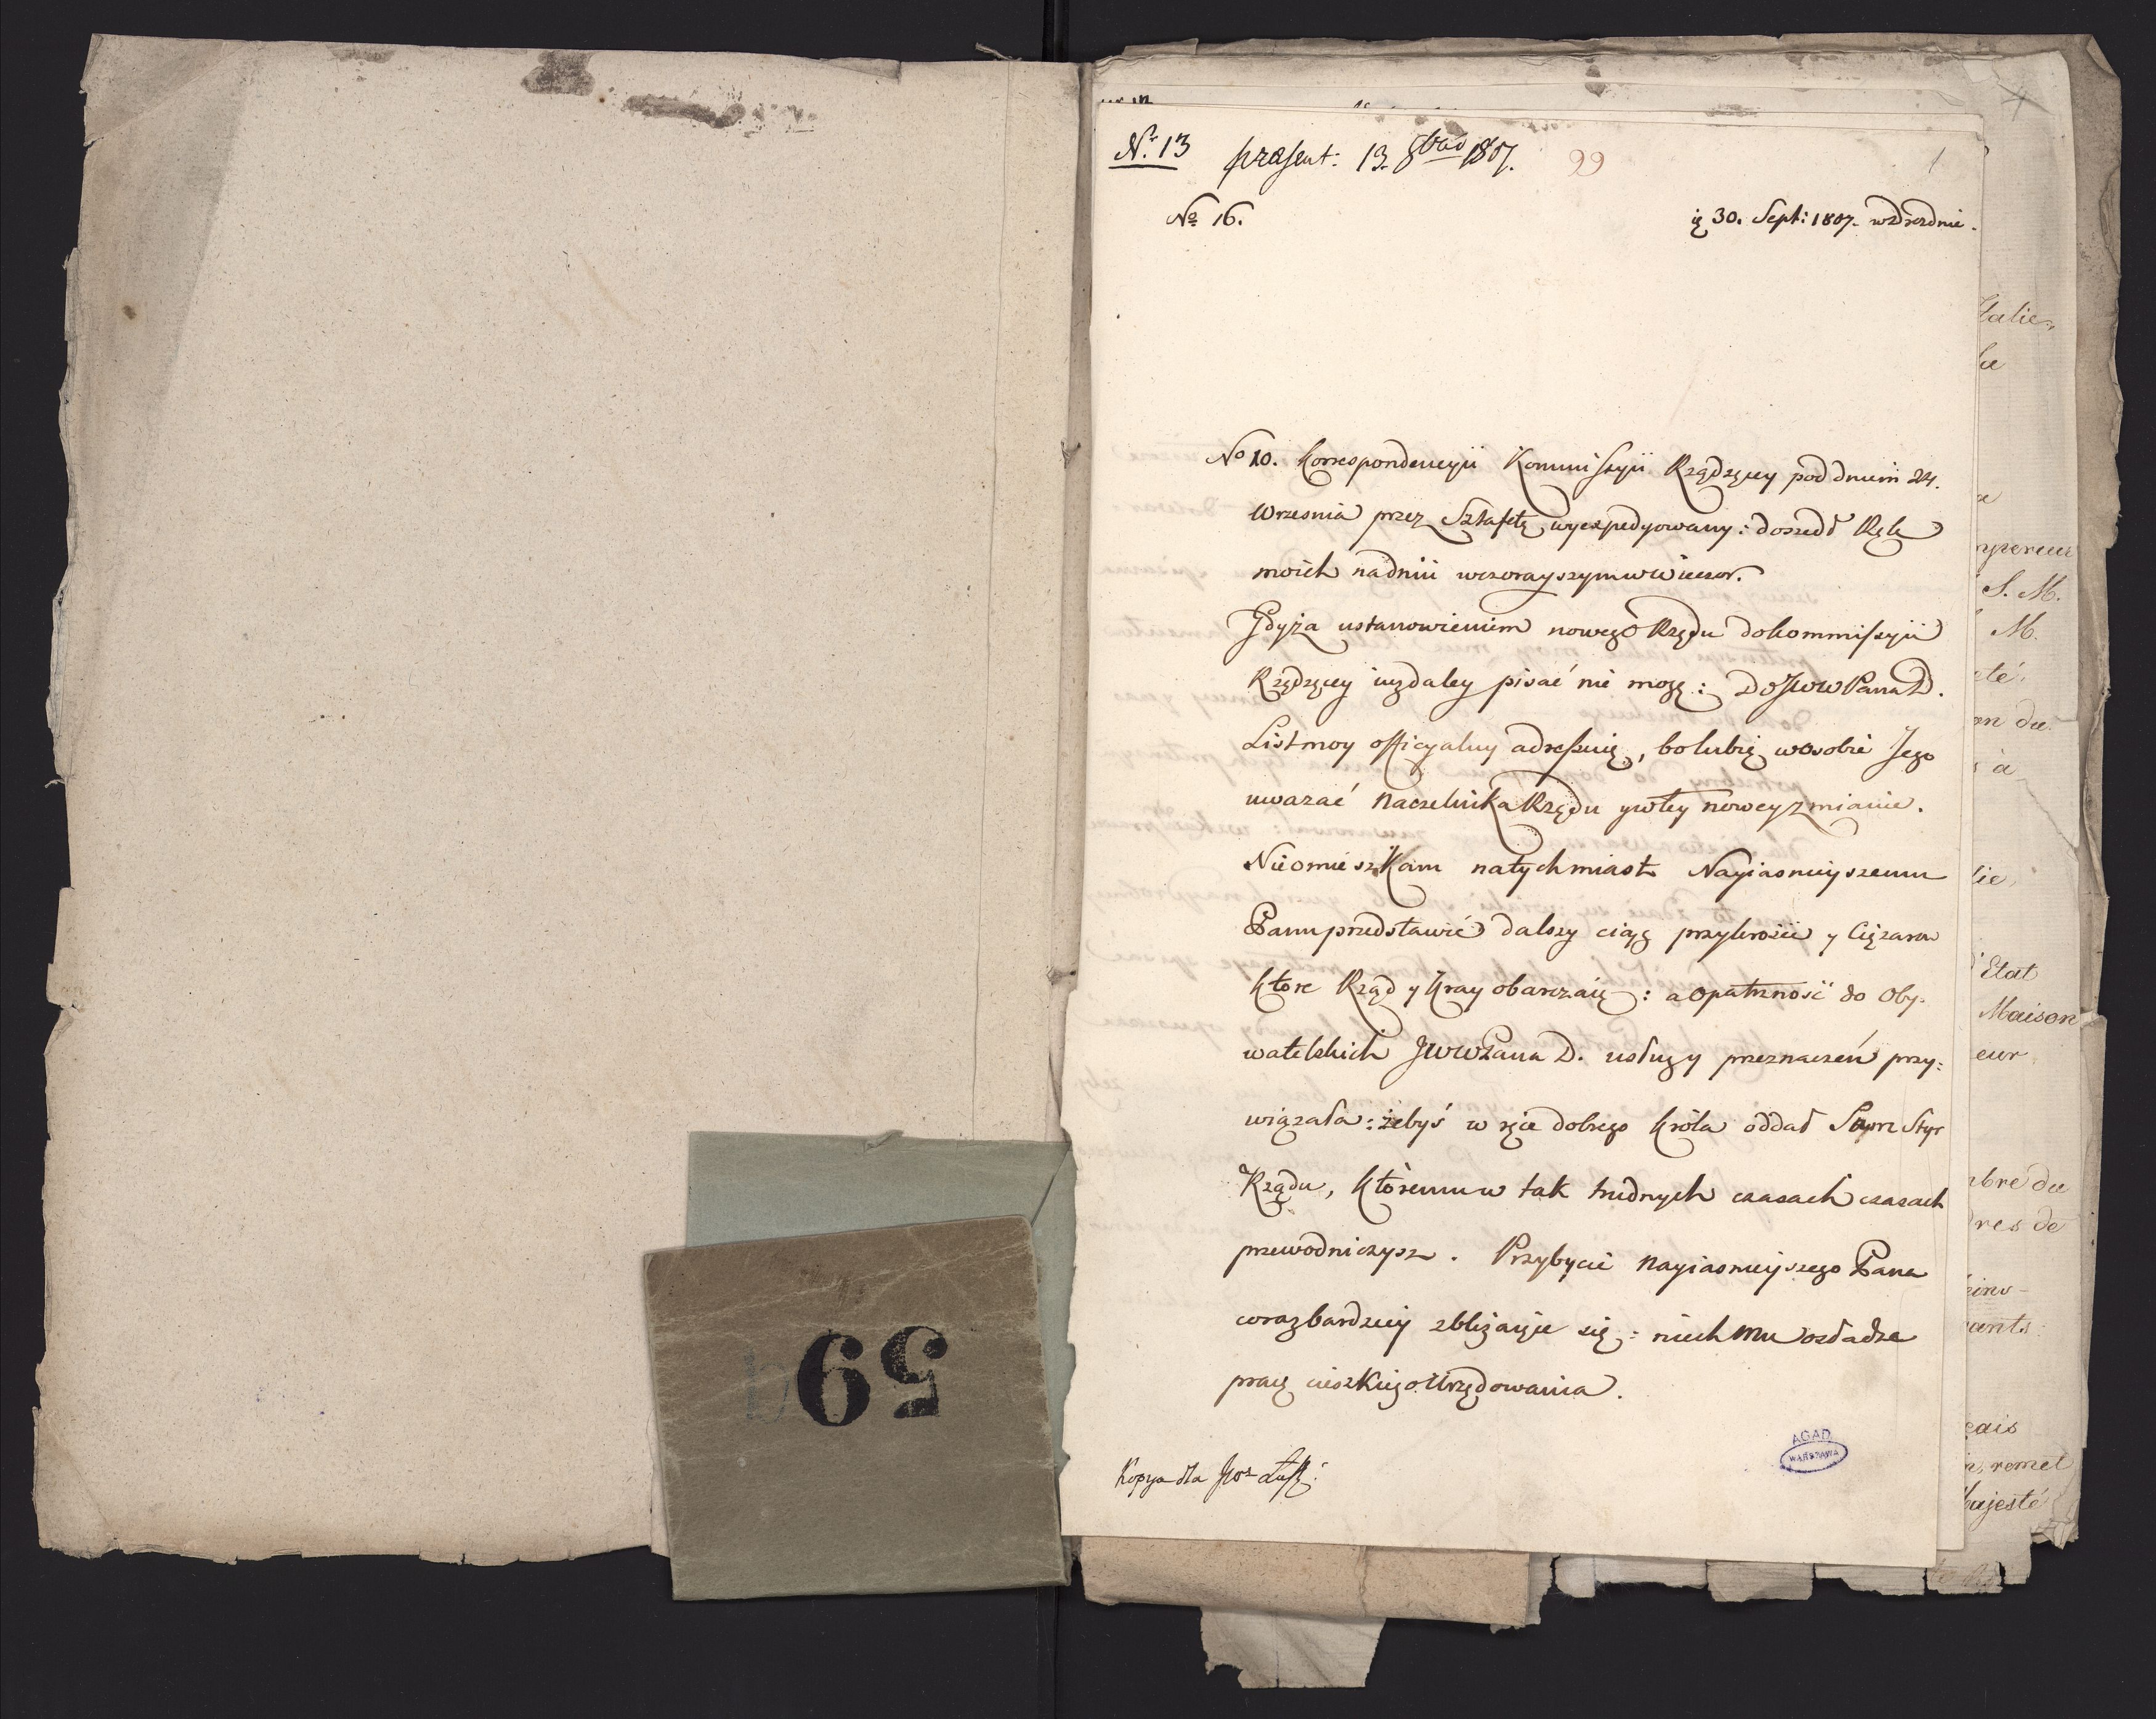 59
Nr. 13 præsent: 13. 8bris 1807. 99 1
No 16. 30. Sept: 1807. w Dreznie.
No 10. Korrespondencyii Kommissyii Rządzącey pod dniem 24.
Wrzesnia przez Sztafetę wyexpedyowany: doszedł Rąk
moich na dniu wczorayszym w wieczor.
Gdy za ustanowieniem nowego Rządu do Kommissyii
Rządzącey iuż daley pisać nie mogę: Do JWW Pana D.
List moy officyalny adressuię, bo lubię w osobie Jego
uwazać Naczelnika Rządu y w tey nowey zmianie.
Nieomieszkam natychmiast Nayiasnieyszemu
Panu przedstawić dalszy ciąg przykrości y Cięzarow
ktore Rząd y Kray obarczaią: a opatrzność do Oby-
watelskich JWW Pana D. usługy przeznaczeń przy:
wiązała: żebyś w ręce dobrego Króla oddał Styr
Rządu, któremu w tak trudnych czasach czasach
przewodniczysz. Przybycie Nayiasnieyszego Pana
coraz bardziey zbliżaiące się: niech Mu osładza
pracę cieszkiego Urzędowania.
Kopya dla
AGAD
WARSZAWA
Italie,
S. M.
M.
été.
on du
à
lie,
d'Etat
Maison
eur
mbre du
dres de
çais
remet
Majesté